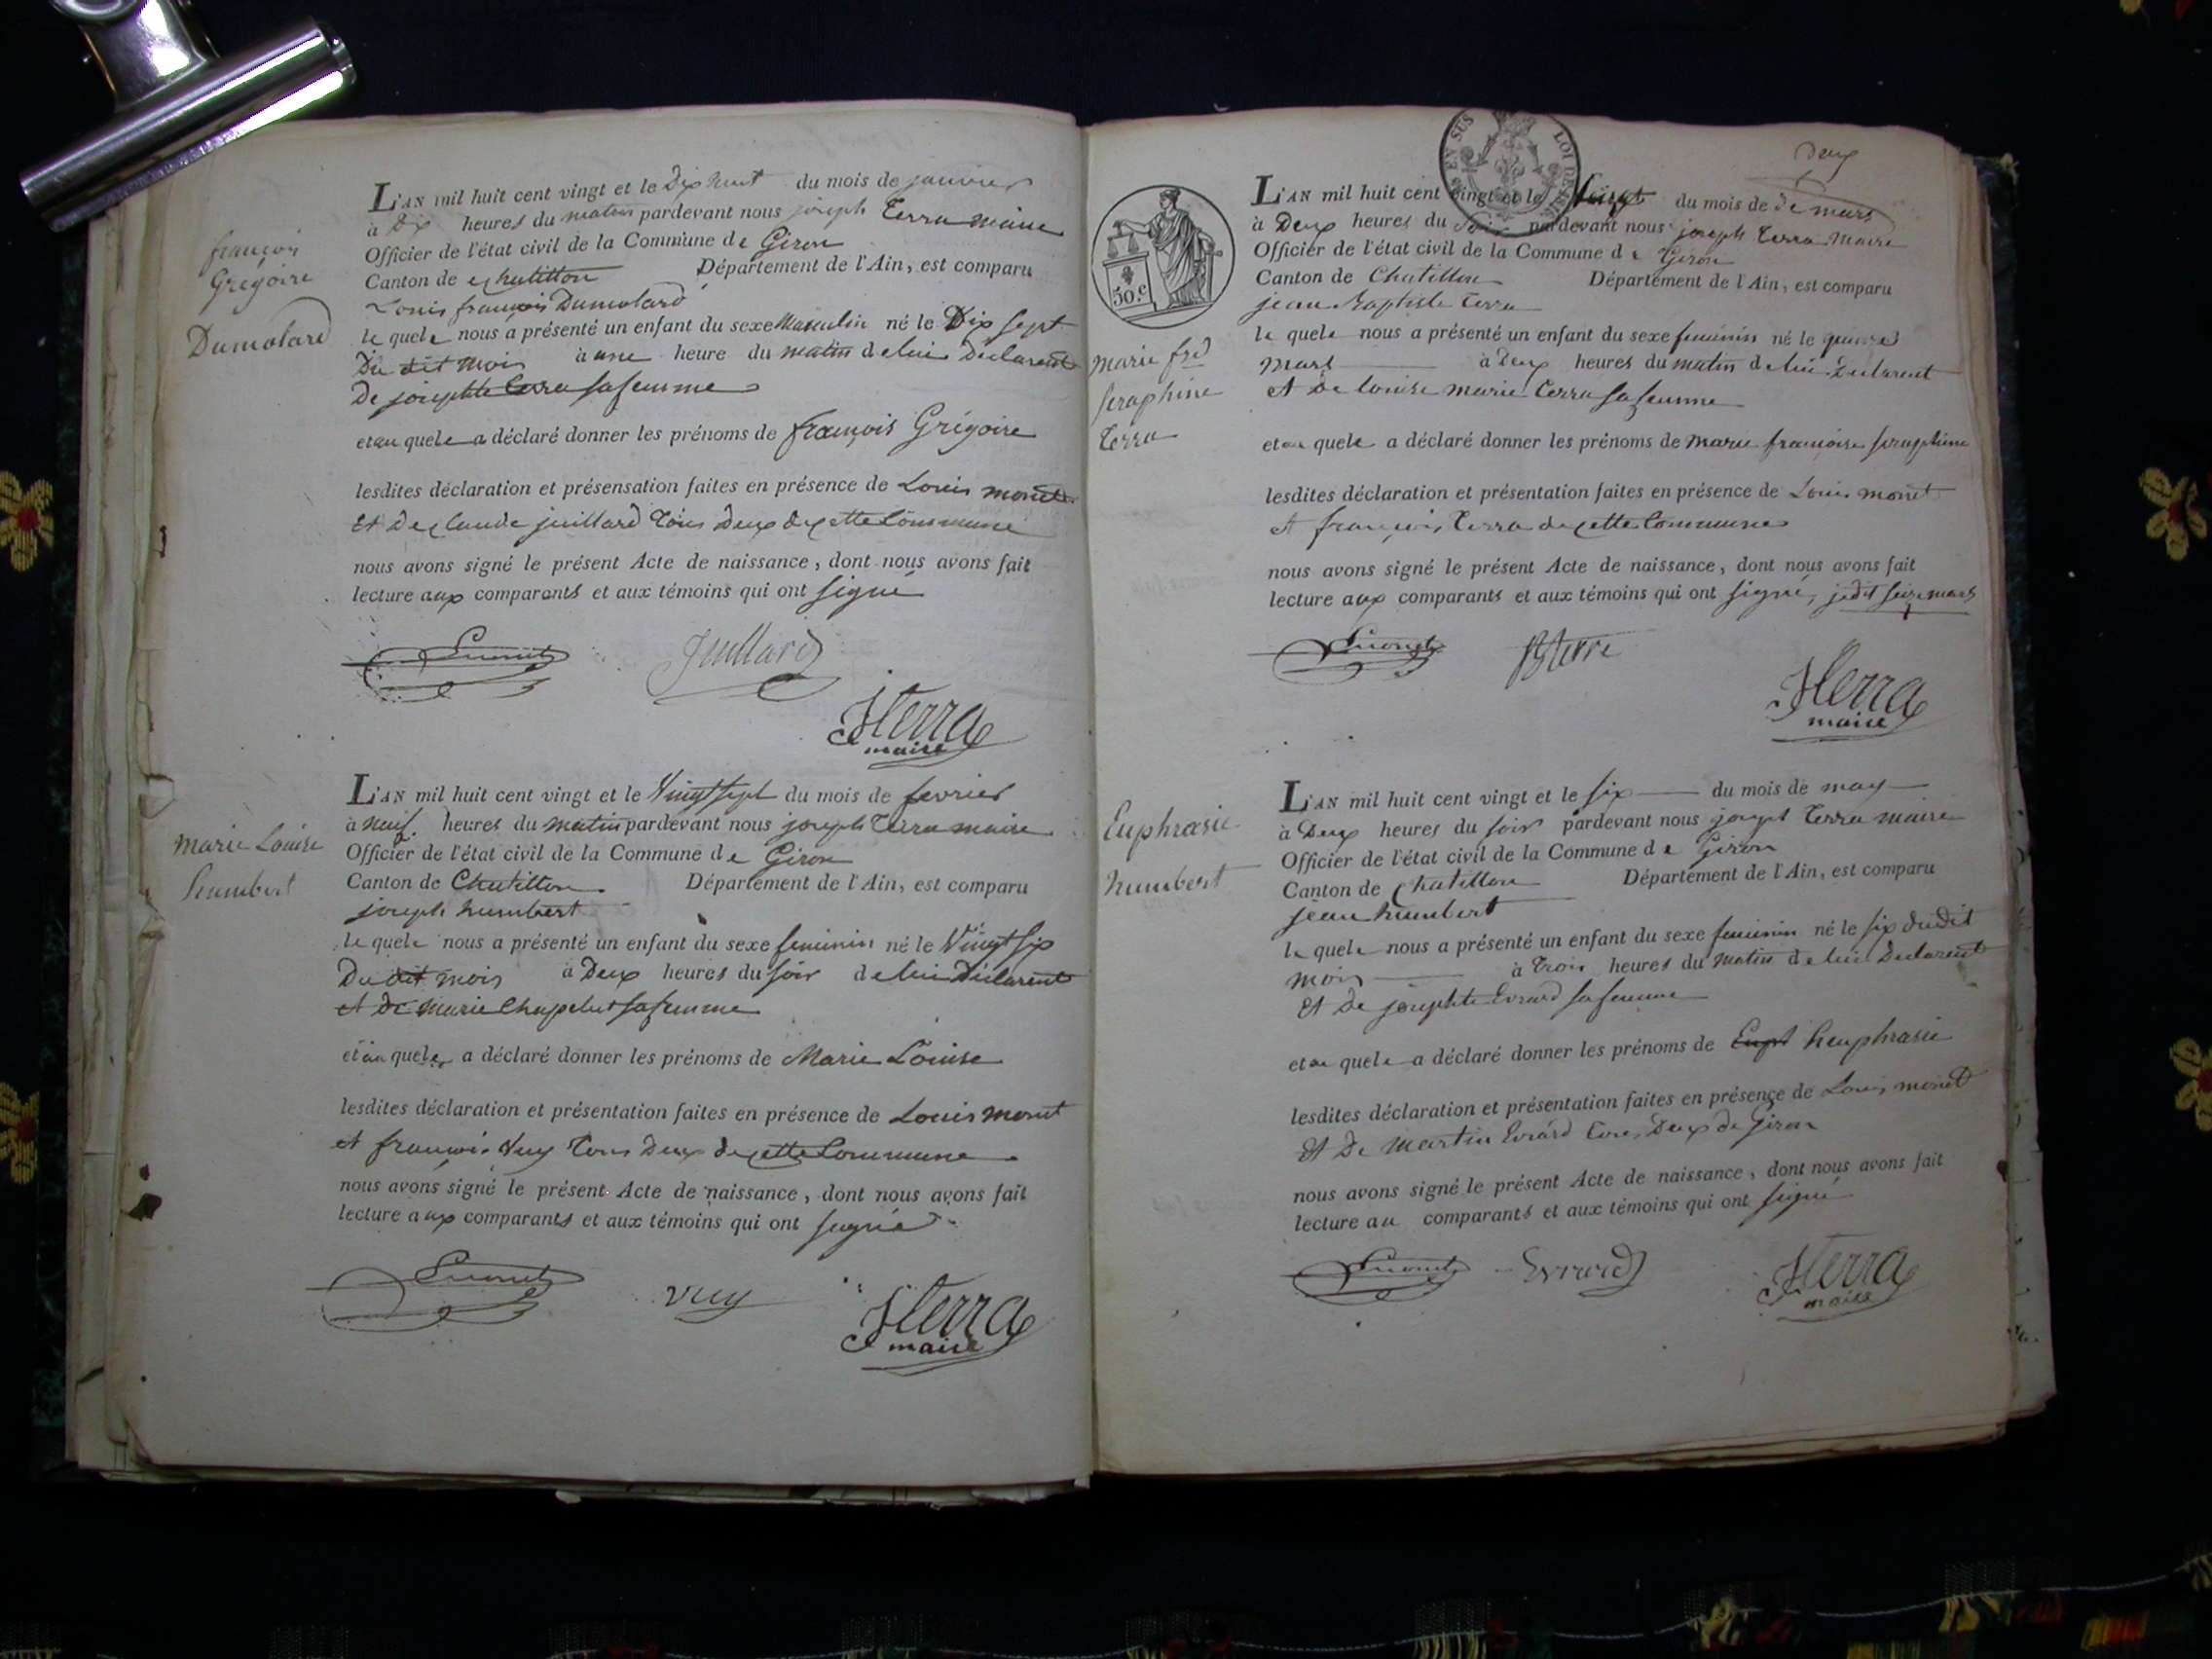 françois
Grégoire
Dumolard
L'AN mil huit cent vingt et le Dix huit du mois de janvier
à Dix heures du matin pardevant nous joseph Terra maire
Officier de l'état civil de la Commune de Giron
Canton de chatillon Département de l'Ain, est comparu
Louis françois Dumolard
le quele nous a présenté un enfant du sexe Masculin né le Dix sept
Du dit mois à une heure du matin de lui Déclarent
De josephte Terra sa femme
et au quele a déclaré donner les prénoms de françois Grégoire
lesdites déclaration et présensation faites en présence de Louis monet
Et De claude juillard Tous Deux de cette Commune
nous avons signé le présent Acte de naissance, dont nous avons fait
lecture aux comparants et aux témoins qui ont signé
Lmonet Juillard
JTerra
maire
marie Louise
humbert
L'AN mil huit cent vingt et le Vingt sept du mois de fevrier
à neuf heures du matin pardevant nous joseph Terra maire
Officier de l'état civil de la Commune de Giron
Canton de Chatillon Département de l'Ain, est comparu
joseph humbert
le quele nous a présenté un enfant du sexe feminin né le Vingt six
Du dit mois à Deux heures du soir de lui Déclarent
et de Marie Chapelut sa femme
et au quele a déclaré donner les prénoms de Marie Louise
lesdites déclaration et présentation faites en présence de Louis monet
et françois Vuy Tous Deux de cette Commune
nous avons signé le présent Acte de naissance, dont nous avons fait
lecture aux comparants et aux témoins qui ont signé
Lmonet vuy JTerra
maire
Deux
EN SUS LOI DE
50.c
L'AN mil huit cent vingt et le du mois de mars
à Deux heures du Soir pardevant nous joseph Terra Maire
Officier de l'état civil de la Commune de Giron
Canton de Chatillon Département de l'Ain, est comparu
jean Baptiste Terra
le quele nous a présenté un enfant du sexe feminin né le quinze
mars à Deux heures du matin de lui Déclarent
et De Louise marie Terra sa femme
marie frse
seraphine
Terra
et au quele a déclaré donner les prénoms de marie françoise seraphine
lesdites déclaration et présentation faites en présence de Louis monet
et françois Terra de cette Commune
nous avons signé le présent Acte de naissance, dont nous avons fait
lecture aux comparants et aux témoins qui ont signé, seize mars
Lmonet
JTerra
maire
Euphrasie
humbert
L'AN mil huit cent vingt et le six du mois de may
à Deux heures du soir pardevant nous joseph Terra maire
Officier de l'état civil de la Commune de Giron
Canton de Chatillon Département de l'Ain, est comparu
jean humbert
le quele nous a présenté un enfant du sexe feminin né le six dudit
mois à Trois heures du matin de lui Declarent
et De josephte Evrard sa femme
et au quele a déclaré donner les prénoms de Eupt heuphrasie
lesdites déclaration et présentation faites en présence de Louis monet
et De martin Evrard Tous Deux de Giron
nous avons signé le présent Acte de naissance, dont nous avons fait
lecture au comparants et aux témoins qui ont signé
Lmonet Evrard JTerra
maire